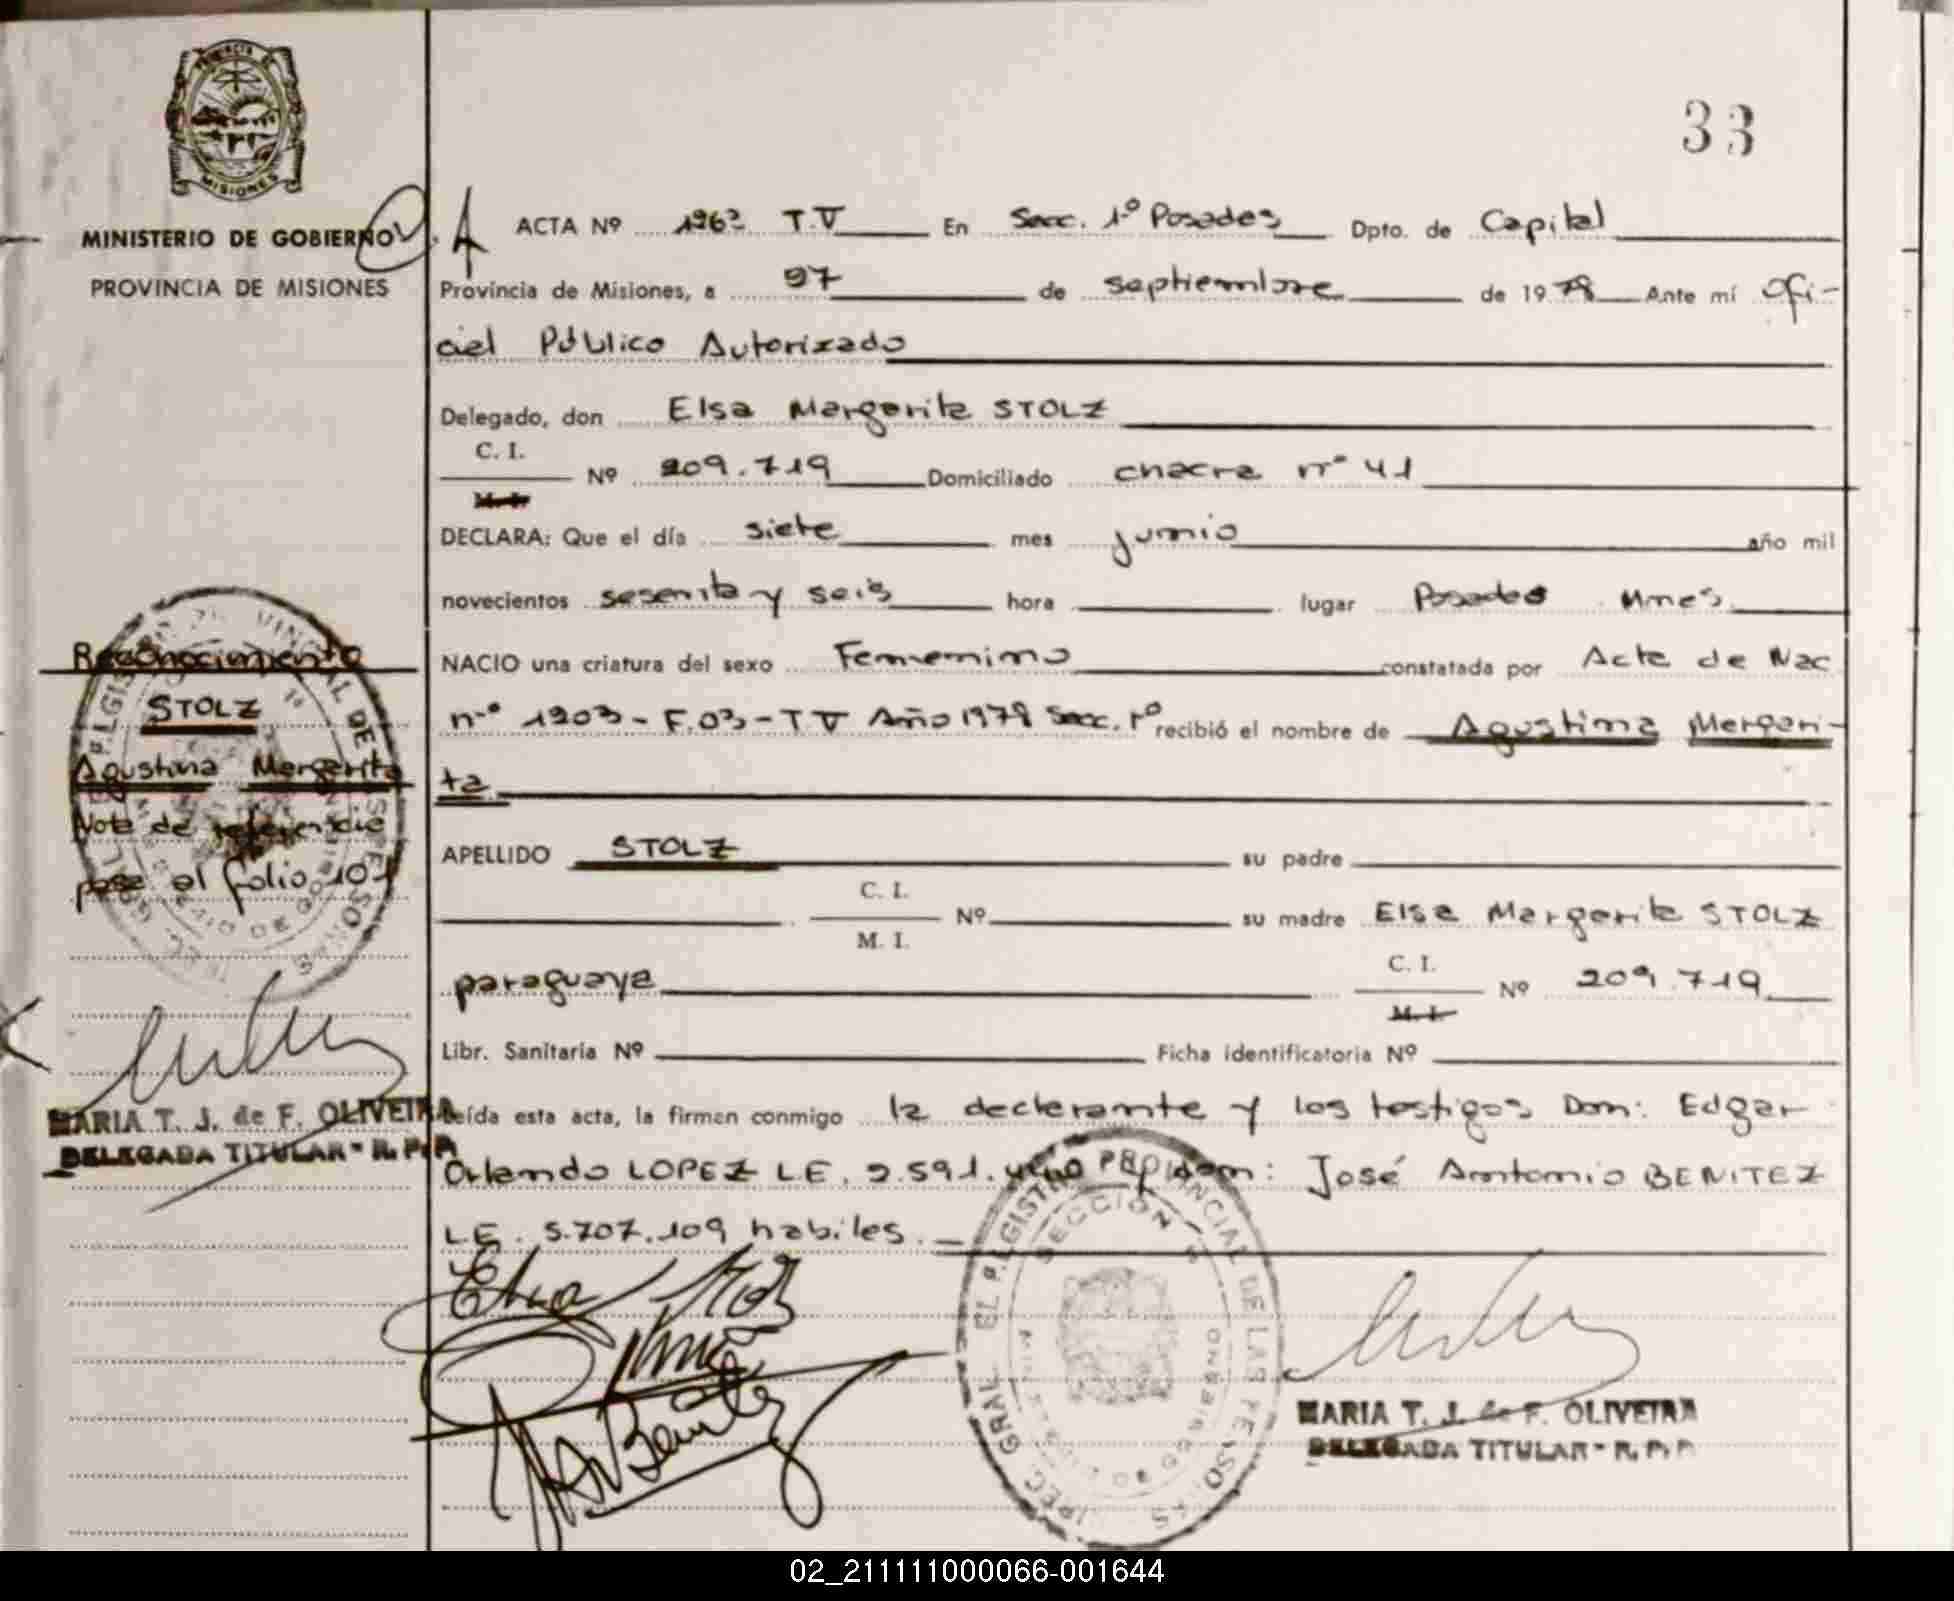 PROVINCIA DE
MISIONES
MINISTERIO DE GOBIERNO
PROVINCIA DE MISIONES
33
ACTA Nº 1963 T.V En Secc. 1º Posadas Dpto. de Capital
Provincia de Misiones, a 27 de septiembre de 1978 Ante mí Ofi-
cial Público Autorizado
Delegado, don Elsa Margarita STOLZ
C. I.
M. I.
Nº 209.719 Domiciliado chacra nº 41
DECLARA: Que el día siete mes junio año mil
novecientos sesenta y seis hora lugar Posadas Mnes
NACIO una criatura del sexo Femenino constatada por Acta de Nac
nº 1903 - F.03 - T V Año 1978 Secc. 1º recibió el nombre de Agustina Margari-
ta
APELLIDO STOLZ su padre
C. I.
M. I.
Nº su madre Elsa Margarita STOLZ
paraguaya C. I. Nº 209.719
M. I.
Libr. Sanitaria Nº Ficha identificatoria Nº
Leída esta acta, la firman conmigo la declarante y los testigos Don: Edgar
Orlando LOPEZ L.E. 2.591. y don: José Antonio BENITEZ
L.E. 5.707.109 habiles.
Reconocimiento
STOLZ
Agustina Margarita
Nota de referencia
pase al folio 101
MARIA T. J. de F. OLIVEIRA
DELEGADA TITULAR - R. P. P.
Elsa Stolz
Benítez
SECCION
MARIA T. J. de F. OLIVEIRA
DELEGADA TITULAR - R. P. P.
02_211111000066-001644